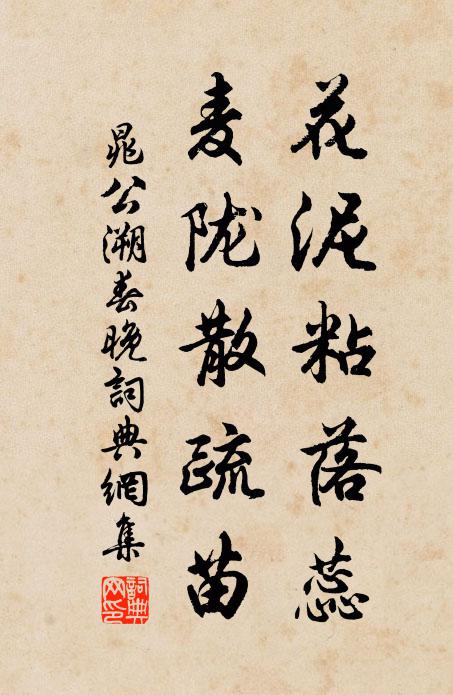 花泥粘落蕊
麦陇散疏苗
晁公溯春晚詞典網集
詞典
网印